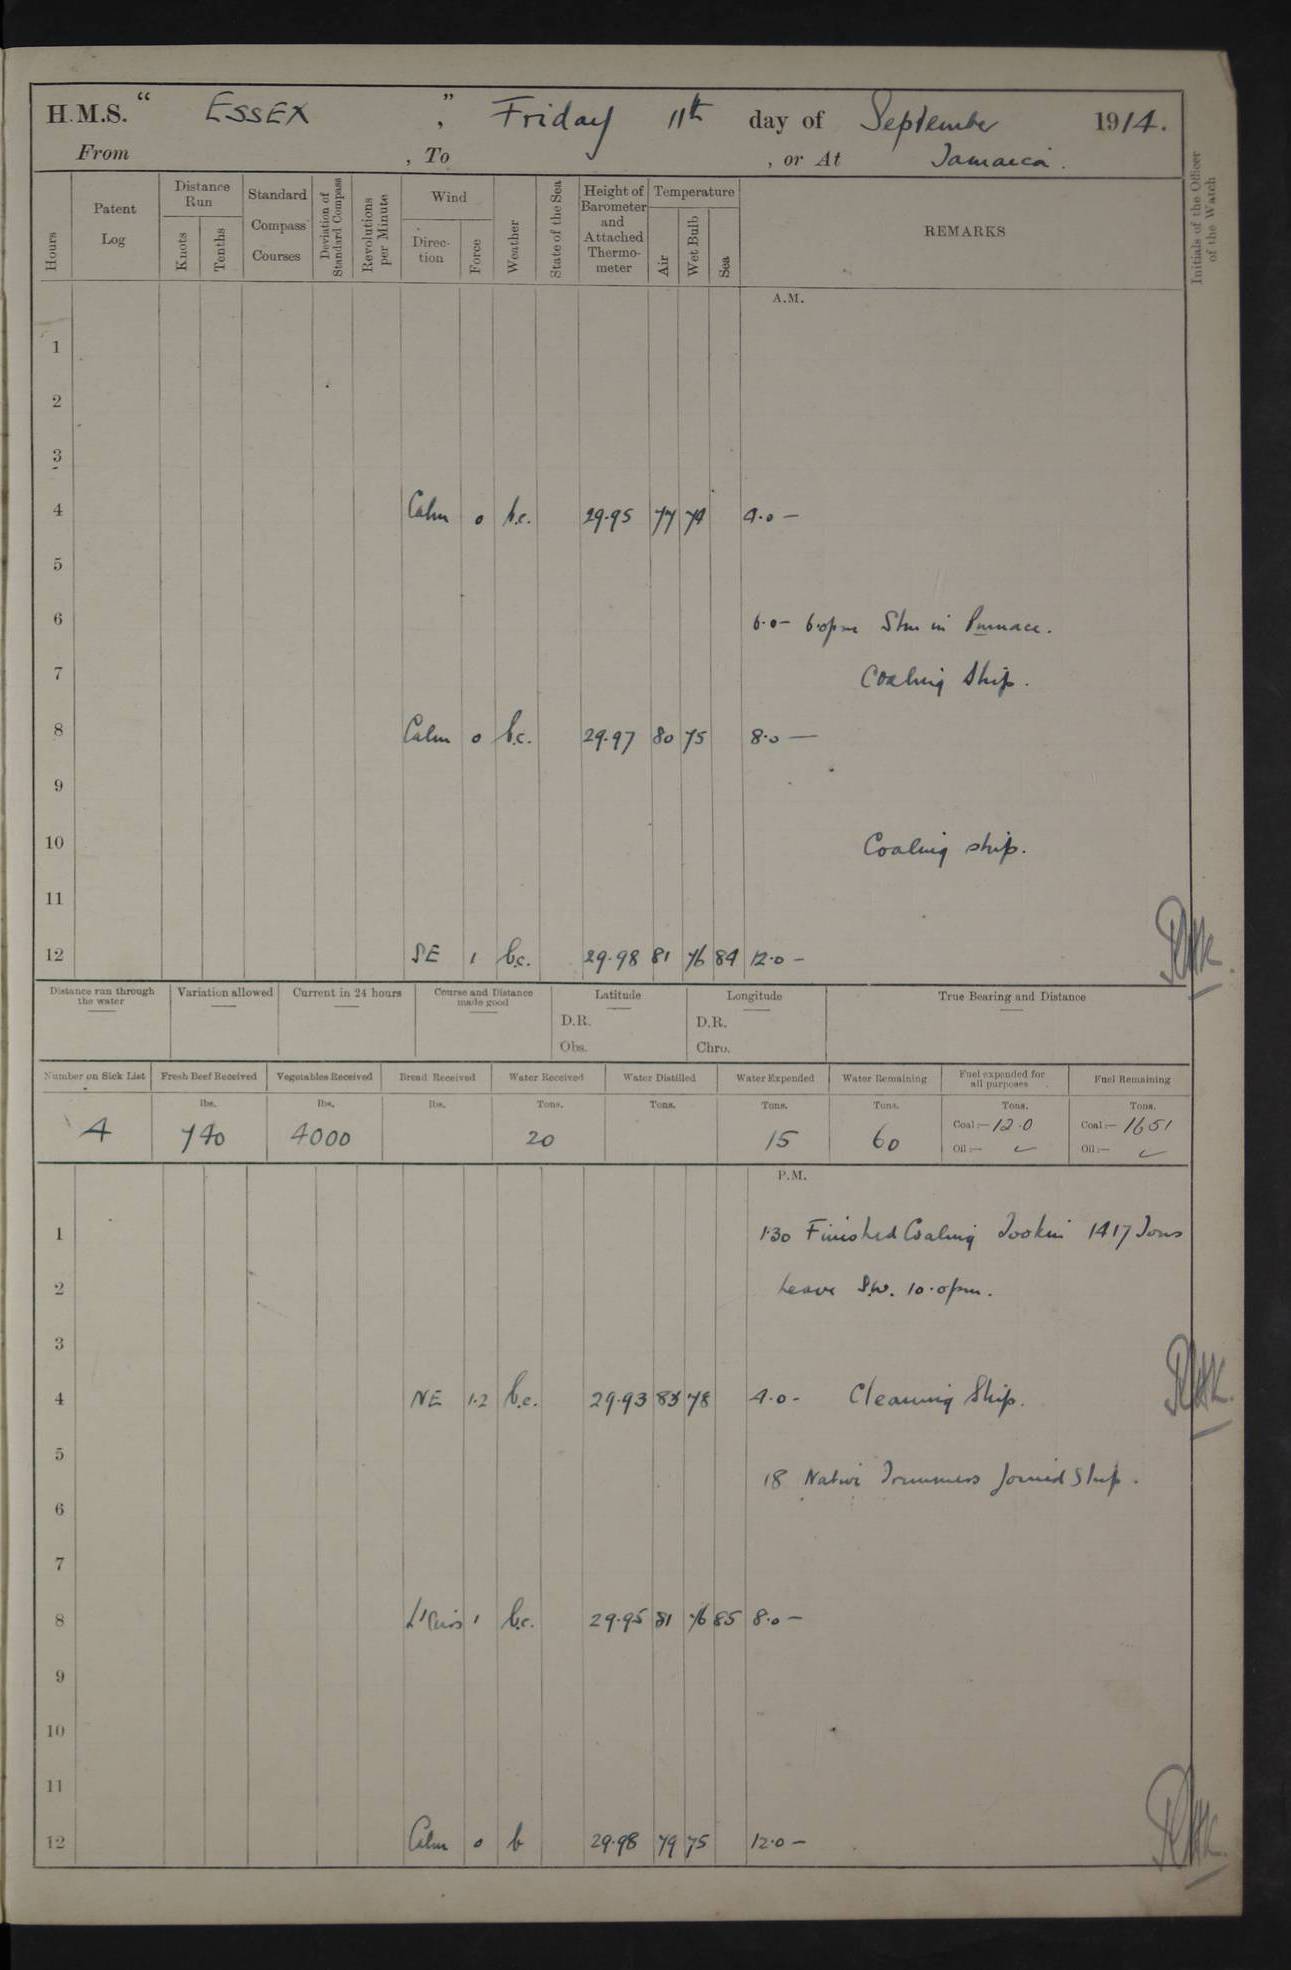 H.M.S. “ ESSEX ”, Friday 11th day of September 1914.
From , To , or At Jamaica.
Hours
Patent Log
Distance Run
Knots
Tenths
Standard Compass Courses
Deviation of Standard Compass
Revolutions per Minute
Wind
Direc-tion
Force
Weather
State of the Sea
Height of Barometer and Attached Thermo-meter
Temperature
Air
Wet Bulb
Sea
REMARKS
Initials of the Officer of the Watch
A.M.
1
2
3
4 Calm 0 b.c. 29.95 77 74 4.0 —
5
6 6.0 — 6.0pm Stm in Pinnace.
7 Coaling Ship.
8 Calm 0 b.c. 29.97 80 75 8.0 —
9
10 Coaling ship.
11
12 SE 1 b.c. 29.98 81 76 84 12.0 —
Distance run through the water
Variation allowed
Current in 24 hours
Course and Distance made good
Latitude
D.R.
Obs.
Longitude
D.R.
Chro.
True Bearing and Distance
Number on Sick List Fresh Beef Received Vegetables Received Bread Received Water Received Water Distilled Water Expended Water Remaining Fuel expended for all purposes Fuel Remaining
lbs. lbs. lbs. Tons. Tons. Tons. Tons. Tons. Tons.
4 740 4000 20 15 60 Coal:— 12.0 Coal:— 1651
Oil:— ✓ Oil:— ✓
P.M.
1 1.30 Finished Coaling Took in 1417 Tons
2 Leave S.W. 10.0pm.
3
4 NE 1.2 b.c. 29.93 83 78 4.0 - Cleaning Ship.
5
18 Native Trimmers Joined Ship.
6
7
8 L'Airs 1 b.c. 29.95 81 76 85 8.0 —
9
10
11
12 Calm 0 b 29.98 79 75 12.0 —